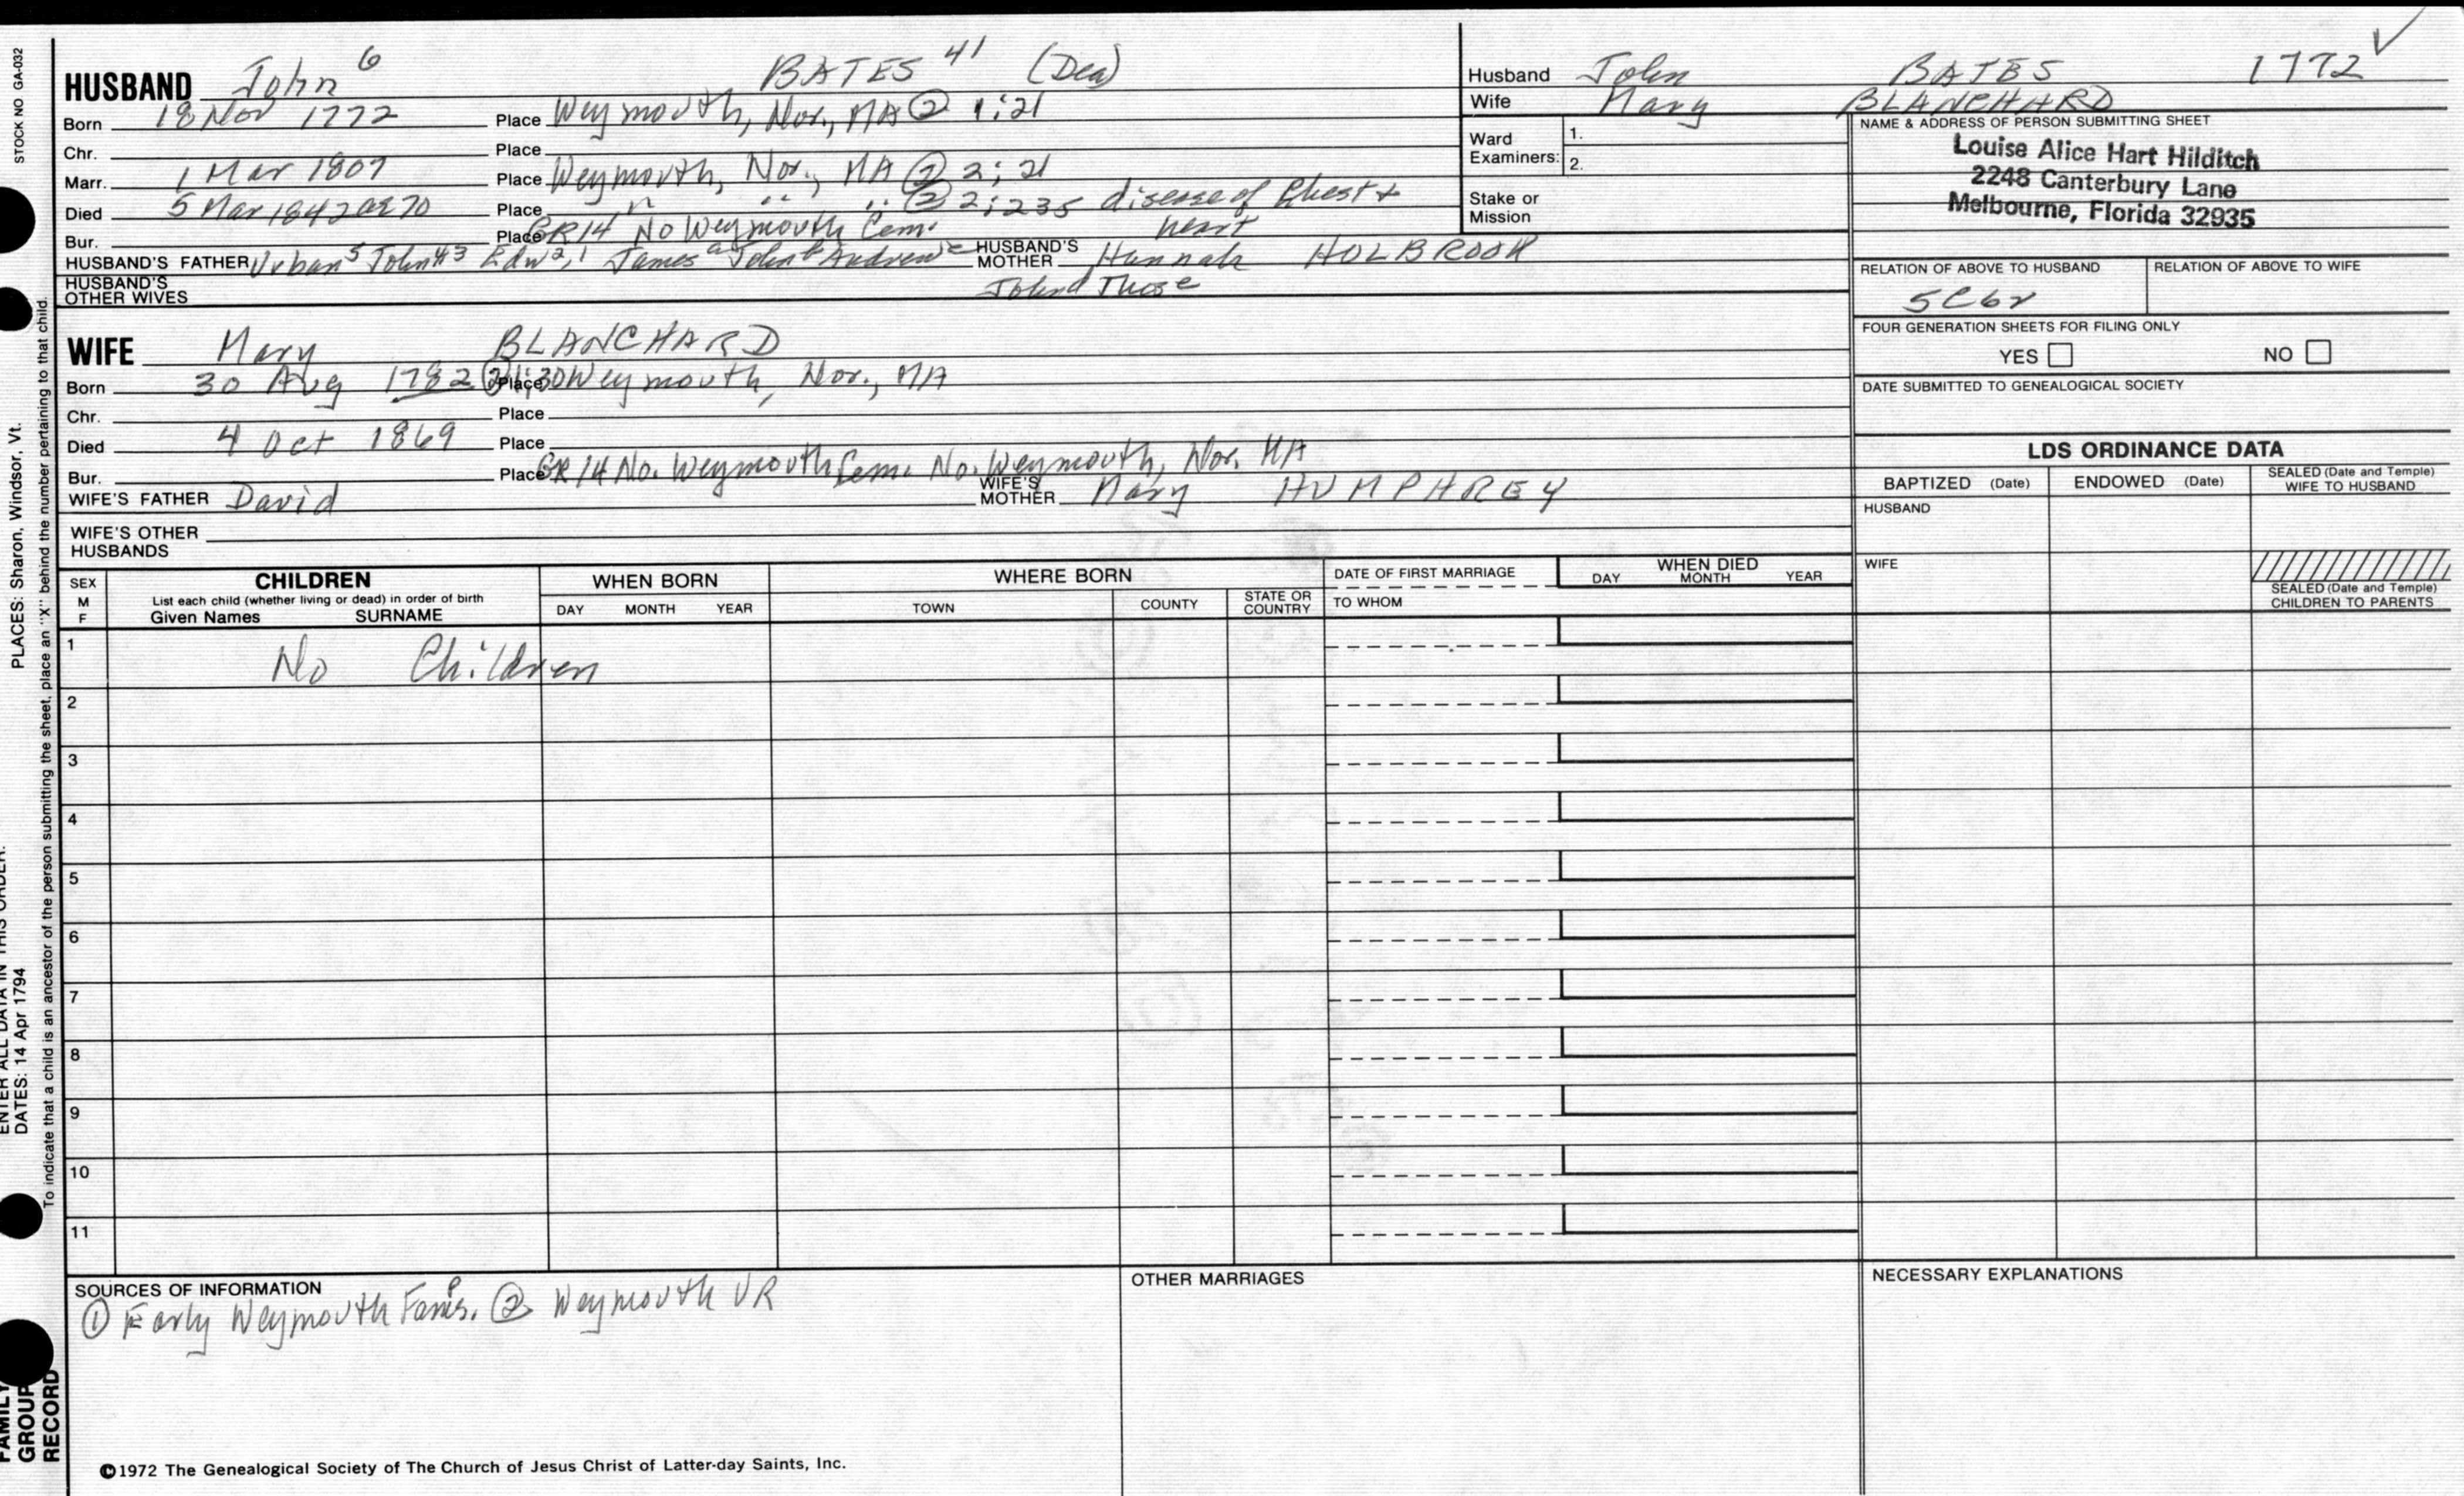 STOCK NO GA-032
PLACES: Sharon, Windsor, Vt.
ENTER ALL DATA IN THIS ORDER:
DATES: 14 Apr 1794
To indicate that a child is an ancestor of the person submitting the sheet, place an "X" behind the number pertaining to that child.
FAMILY
GROUP
RECORD
HUSBAND John 6 BATES 41 (Dea)
Born 18 Nov 1772 Place Weymouth, Nor., MA ② 1:21
Chr. Place
Marr. 1 Mar 1807 Place Weymouth, Nor., MA ② 2:21
Died 5 Mar 1842 ae 70 Place " " " ② 2:235 disease of Chest +
heart
Bur. Place GR14 No Weymouth Cem.
HUSBAND'S FATHER Urban 5 John 43 Edw 2,1 James a John b Andrew c HUSBAND'S MOTHER Hannah HOLBROOK
HUSBAND'S OTHER WIVES John d Thos e
Husband John BATES 1772 ✓
Wife Mary BLANCHARD
Ward Examiners: 1.
2.
Stake or Mission
NAME & ADDRESS OF PERSON SUBMITTING SHEET
Louise Alice Hart Hilditch
2248 Canterbury Lane
Melbourne, Florida 32935
RELATION OF ABOVE TO HUSBAND RELATION OF ABOVE TO WIFE
5C6r
FOUR GENERATION SHEETS FOR FILING ONLY
YES NO
DATE SUBMITTED TO GENEALOGICAL SOCIETY
WIFE Mary BLANCHARD
Born 30 Aug 1782 ② 1:30 Place Weymouth, Nor., MA
Chr. Place
Died 4 Oct 1869 Place
Bur. Place GR14 No. Weymouth Cem. No. Weymouth, Nor. MA
WIFE'S FATHER David WIFE'S MOTHER Mary HUMPHREY
WIFE'S OTHER HUSBANDS
LDS ORDINANCE DATA
BAPTIZED (Date) ENDOWED (Date) SEALED (Date and Temple) WIFE TO HUSBAND
HUSBAND
WIFE
SEALED (Date and Temple) CHILDREN TO PARENTS
SEX M F
CHILDREN
List each child (whether living or dead) in order of birth
Given Names SURNAME
WHEN BORN
DAY MONTH YEAR
WHERE BORN
TOWN COUNTY STATE OR COUNTRY
DATE OF FIRST MARRIAGE
TO WHOM
WHEN DIED
DAY MONTH YEAR
1 No Children
2
3
4
5
6
7
8
9
10
11
SOURCES OF INFORMATION
① Early Weymouth Fams. ② Weymouth VR
OTHER MARRIAGES
NECESSARY EXPLANATIONS
©1972 The Genealogical Society of The Church of Jesus Christ of Latter-day Saints, Inc.